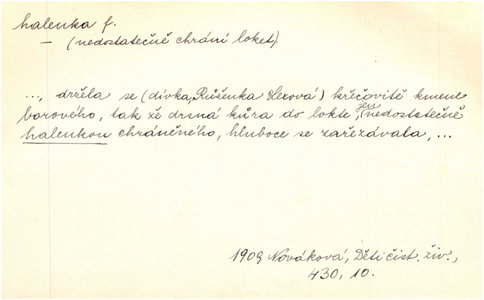 halenka f.
– (nedostatečně chrání loket)
..., držela se (dívka, Růženka Hexová) křečovitě kmene
borového, tak že drsná kůra do lokte, jen nedostatečně
halenkou chráněného, hluboce se zařezávala, ...
1909 Nováková, Děti čist. živ.,
430, 10.